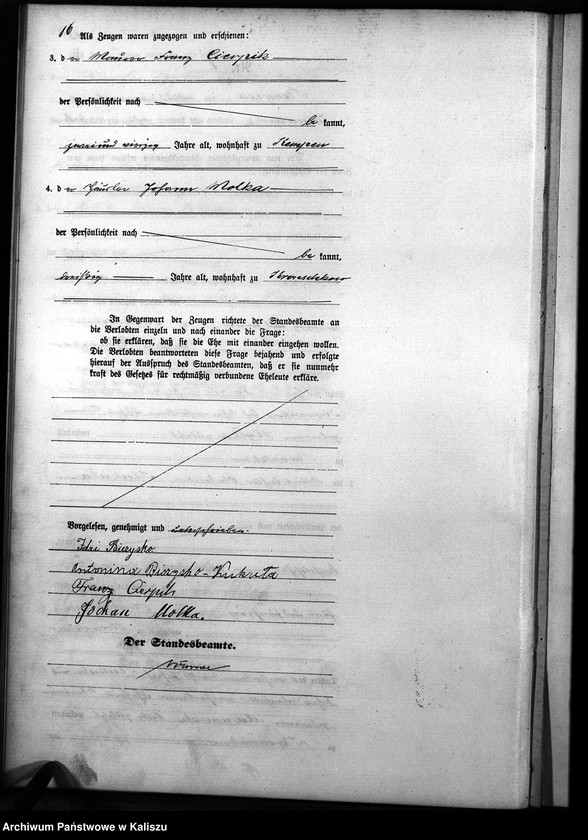 16
Als Zeugen waren zugezogen und erschienen:
3. der Maurer Franz
der Persönlichkeit nach
be kannt,
zweiundvierzig Jahre alt, wohnhaft zu Kempen
4. der Häusler Johann Molka
der Persönlichkeit nach
be kannt,
dreißig Jahre alt, wohnhaft zu
In Gegenwart der Zeugen richtete der Standesbeamte an
die Verlobten einzeln und nach einander die Frage:
ob sie erklären, daß sie die Ehe mit einander eingehen wollen.
Die Verlobten beantworteten diese Frage bejahend und erfolgte
hierauf der Ausspruch des Standesbeamten, daß er sie nunmehr
kraft des Gesetzes für rechtmäßig verbundene Eheleute erkläre.
Vorgelesen, genehmigt und unterschrieben.
Idzi Biezysko
Antonina Biezysko-Kukuła
Franz
Johan Molka.
Der Standesbeamte.
Archiwum Państwowe w Kaliszu